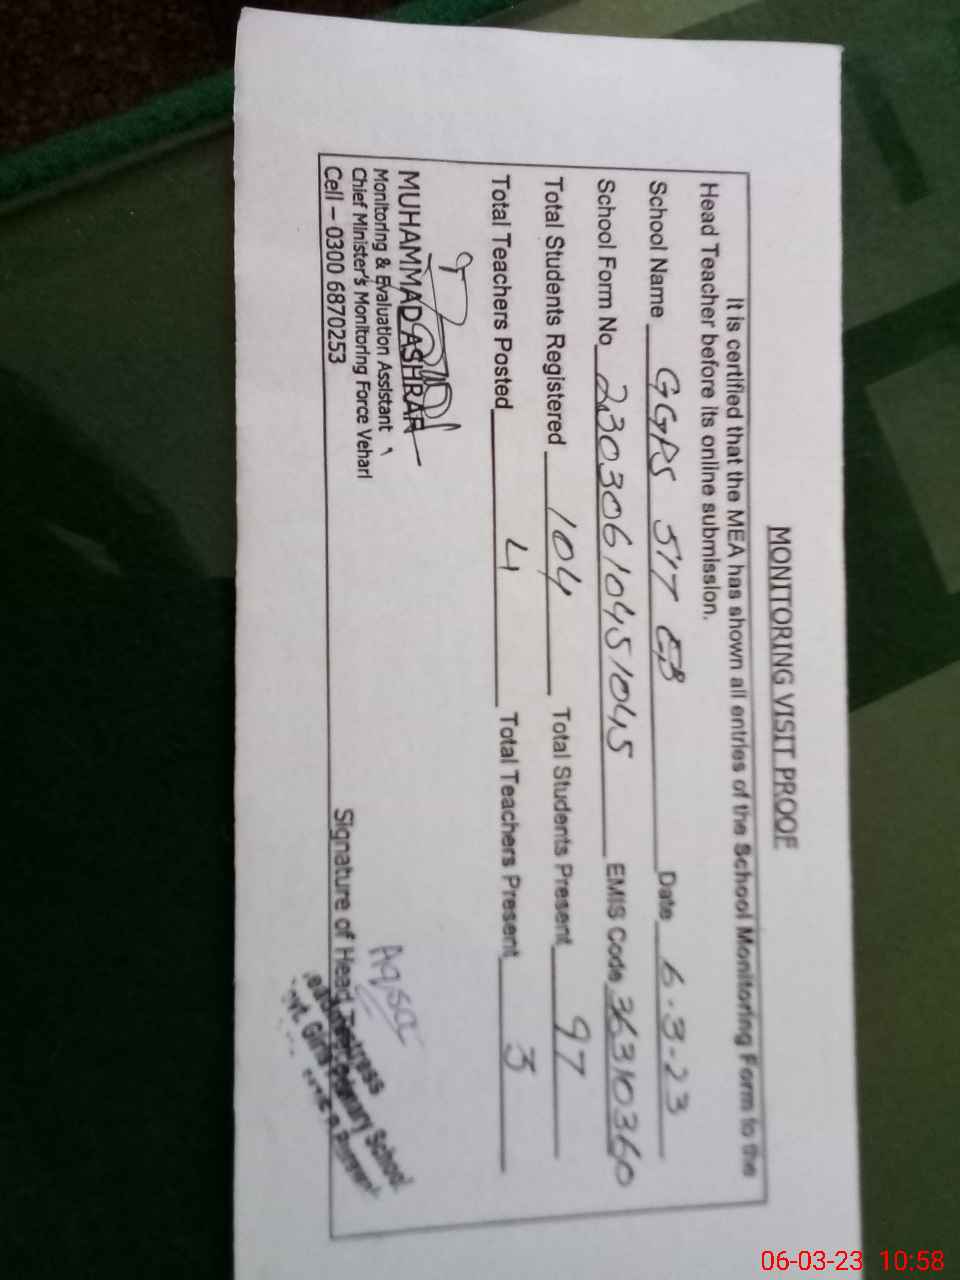 MONITORING VISIT PROOF
It is certified that the MEA has shown all entries of the School Monitoring Form to the
Head Teacher before its online submission.
School Name GGPS 517 EB Date 6-3-23
School Form No 23030610451045 EMIS Code 36310360
Total Students Registered 104 Total Students Present 97
Total Teachers Posted 4 Total Teachers Present 3
MUHAMMAD ASHRAF
Monitoring & Evaluation Assistant
Chief Minister's Monitoring Force Vehari
Cell – 0300 6870253
Aqsa
Signature of Head
Headmistress
Govt. Girls Primary School
06-03-23 10:58